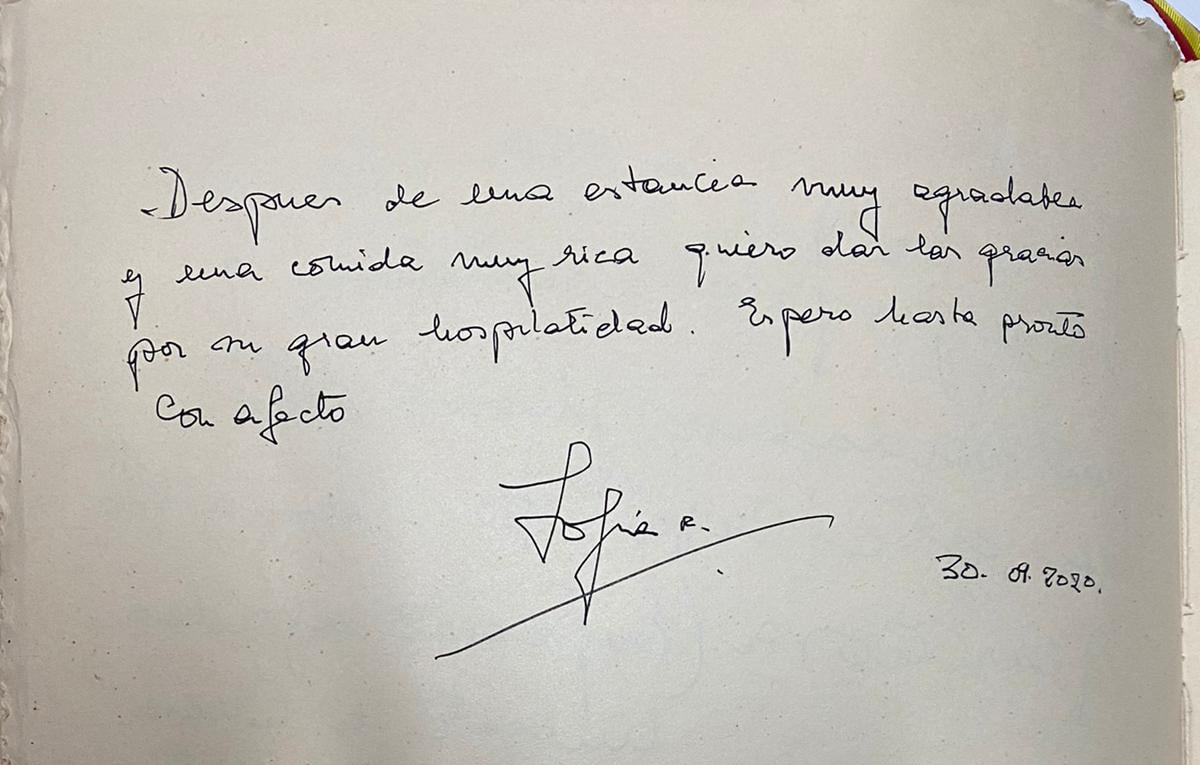 Despues de una estancia muy agradable
y una comida muy rica quiero dar las gracias
por su gran hospilatidad. Espero hasta pronto
Con afecto
Sofia R.
30. 09. 2020.